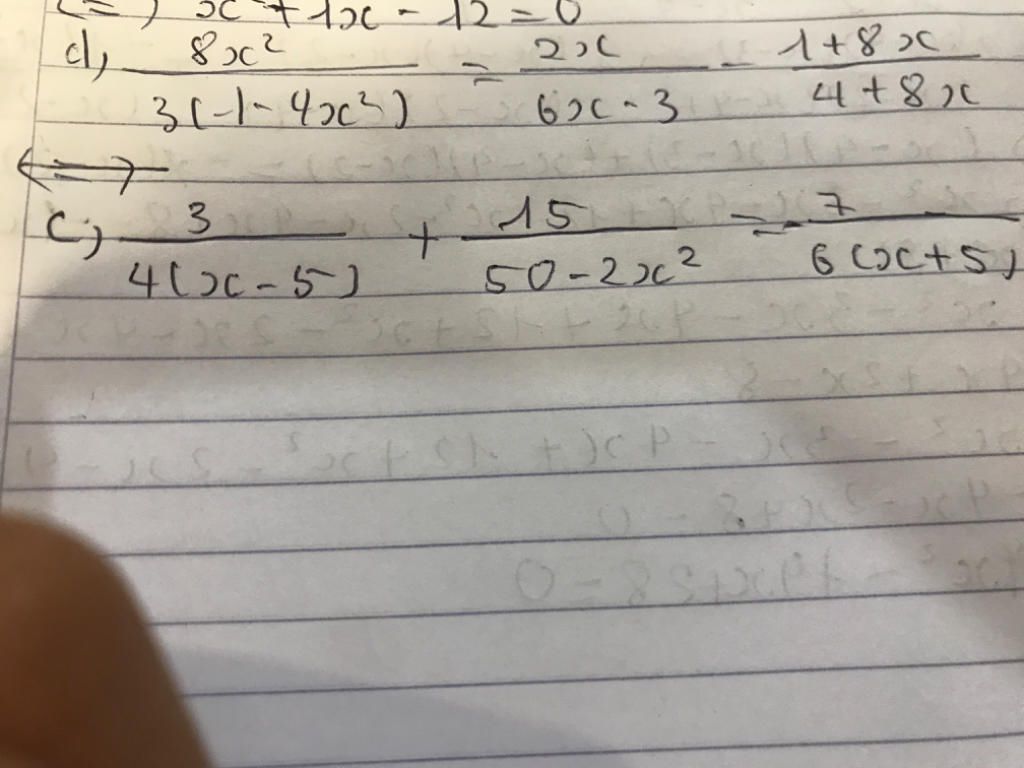 <=> x² + 1x - 12 = 0
d, 8x² / 3(-1-4x²) = 2x / 6x-3 - 1+8x / 4+8x
<=>
c, 3 / 4(x-5) + 15 / 50-2x² = -7 / 6(x+5)